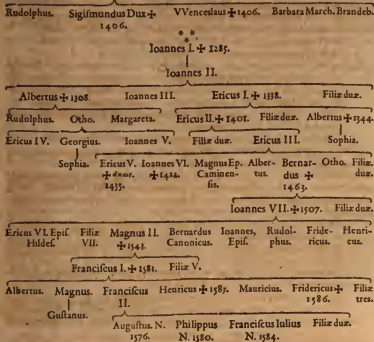 Rudolphus. Sigismundus Dux ✠ 1406. VVenceslaus ✠ 1406. Barbara March. Brandeb.
Ioannes I. ✠ 1285.
Ioannes II.
Albertus ✠ 1308. Ioannes III. Ericus I. ✠ 1338. Filiæ duæ.
Rudolphus. Otho. Margareta. Ericus II. ✠ 1401. Filiæ duæ. Albertus ✠ 1344.
Ericus IV. Georgius. Ioannes V. Filiæ duæ. Ericus III. Sophia.
Sophia. Ericus V. ✠ 1435. Ioannes VI. ✠ 1422. Magnus Ep. Caminensis. Albertus. Bernardus ✠ 1463. Otho. Filiæ duæ.
Ioannes VII. ✠ 1507. Filiæ duæ.
Ericus VI. Epis. Hildes. Filiæ VII. Magnus II. ✠ 1543. Bernardus Canonicus. Ioannes, Epis. Rudolphus. Fridericus. Henricus.
Franciscus I. ✠ 1581. Filiæ V.
Albertus. Magnus. Franciscus II. Henricus ✠ 1585. Mauricius. Fridericus ✠ 1586. Filiæ tres.
Gustanus.
Augustus. N. 1576. Philippus N. 1580. Franciscus Iulius N. 1584. Filiæ duæ.